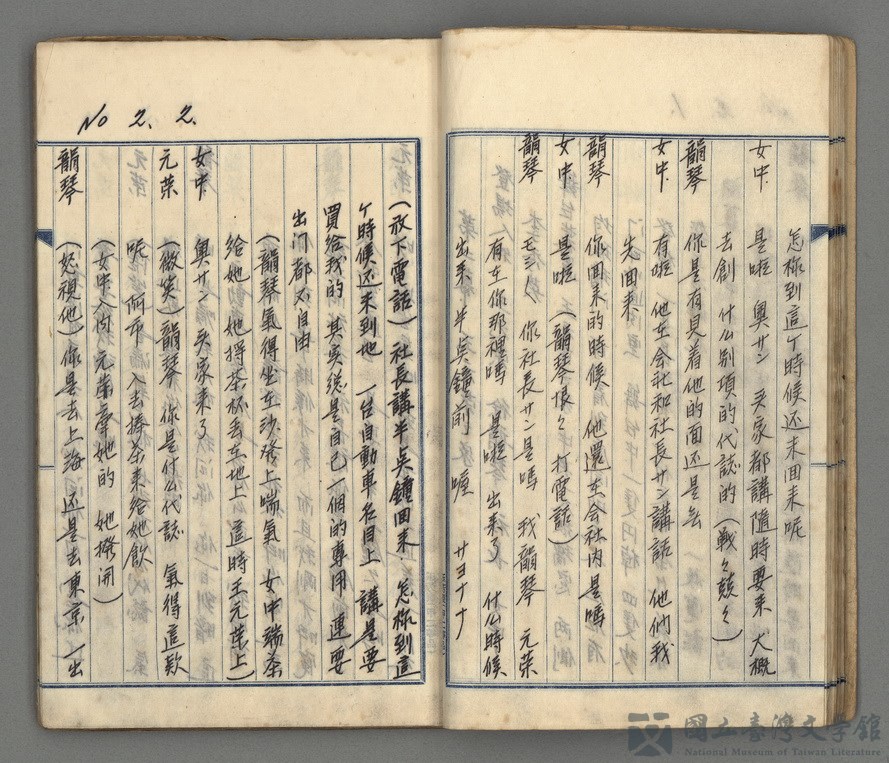 怎称到這个時候还未回来呢
女中 是啦 奥サン 头家都講隨時要来 大概
去創 什么別項的代誌的 (戰々兢々)
韻琴 你是有見着他的面还是無
女中 有啦 他在会社和社長サン講話 他們我
先回来
韻琴 你回来的時候 他還在会社内是嗎
女中 是啦 (韻琴恨々打電話)
韻琴 モシ〱 你社長サン是嗎 我韻琴 元荣
有在你那裡嗎 是啦 出来了 什么時候
出来 半点鐘前 喔 サヨナナ
No 2. 2.
(放下電話) 社長講半点鐘回来 怎称到這
个時候还未到地 一台自動車名目上 講是要
買給我的 其实总是自己一個的專用 連要
出门都不自由
(韻琴氣得坐在沙發上喘氣 女中端茶
給她 她擲茶杯丢在地上 這時王元荣上)
女中 奥サン 头家来了
元荣 (微笑) 韻琴 你是什么代誌 氣得這款
呢 阿市 入去捧茶来給她飲
(女中入内 元荣牽她的 她撥開)
韻琴 (怒視他) 你是去上海 还是去東京 一出
國立臺灣文學館
National Museum of Taiwan Literature